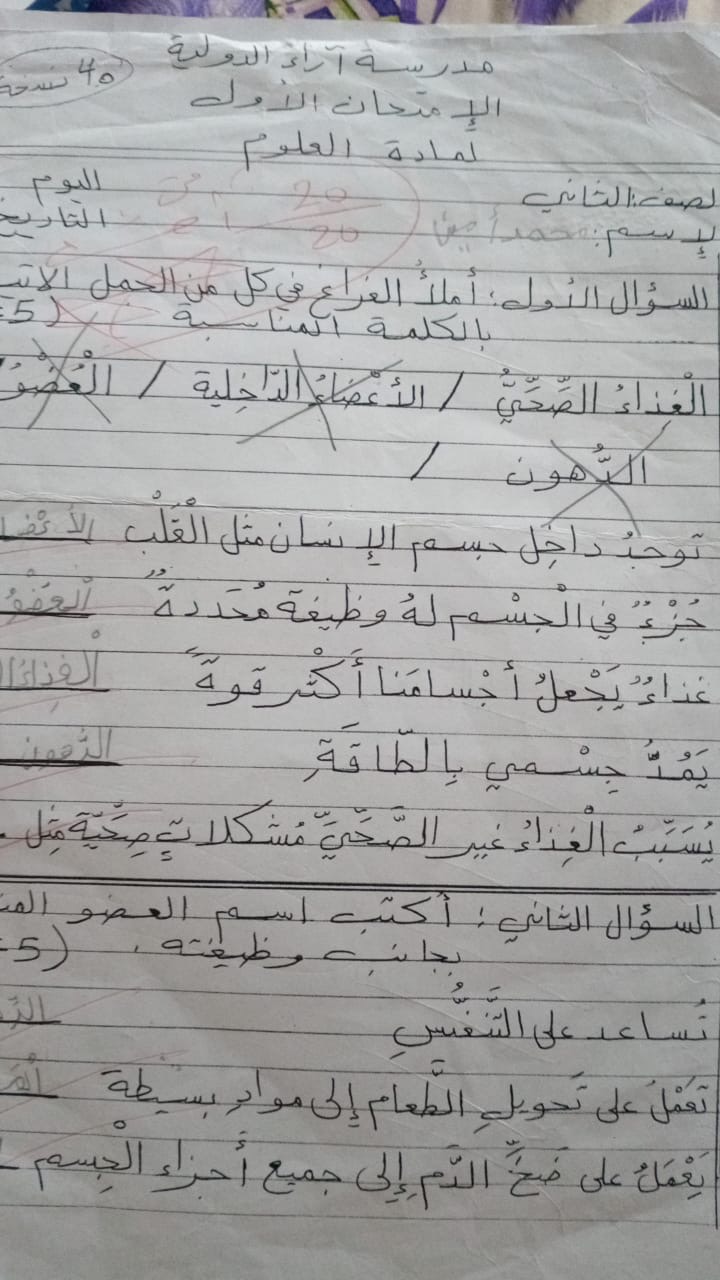 مدرسة آراء الدولية
40 نسخة
الإمتحان الأول
لمادة العلوم
لصف: الثاني
20
20
اليوم
لإسم: محمد أمين
التاريخ
السؤال الأول: أملأ الفراغ في كل من الجمل الآتي
بالكلمة المناسبة (5
الْغِذاءُ الصِّحِّيُّ / الأَعْضَاءُ الدَّاخِلية / الْعُضْوُ
الدُّهون /
توجدُ داخِل جسم الإنسان مثل الْقَلْبْ الأعْضا
جُزْءٌ في الْجِسْم لهُ وظيفة مُحَددةٌ الْعضْوُ
غذاءٌ يَجْعلُ أجْسامَنا أَكْثر قوةً الْغِذاءُ ا
يَمُدُّ جِسْمي بِالطّاقَةِ الدُّهون
يُسَبِّبُ الْغِذاءُ غير الصِّحِّيِّ مُشكلاتٍ صِحِّيَّة مِثل
السؤال الثاني: أكتب اسم العضو المن
بجانب وظيفته. (5
تُساعد على التَّنَفُّسِ
تَعْمَلُ على تَحويلِ الطَّعام إلى موادٍ بسيطة
يَعْمَلُ على ضَخِّ الدَّمِ إلى جميع أَجزاء الْجِسم